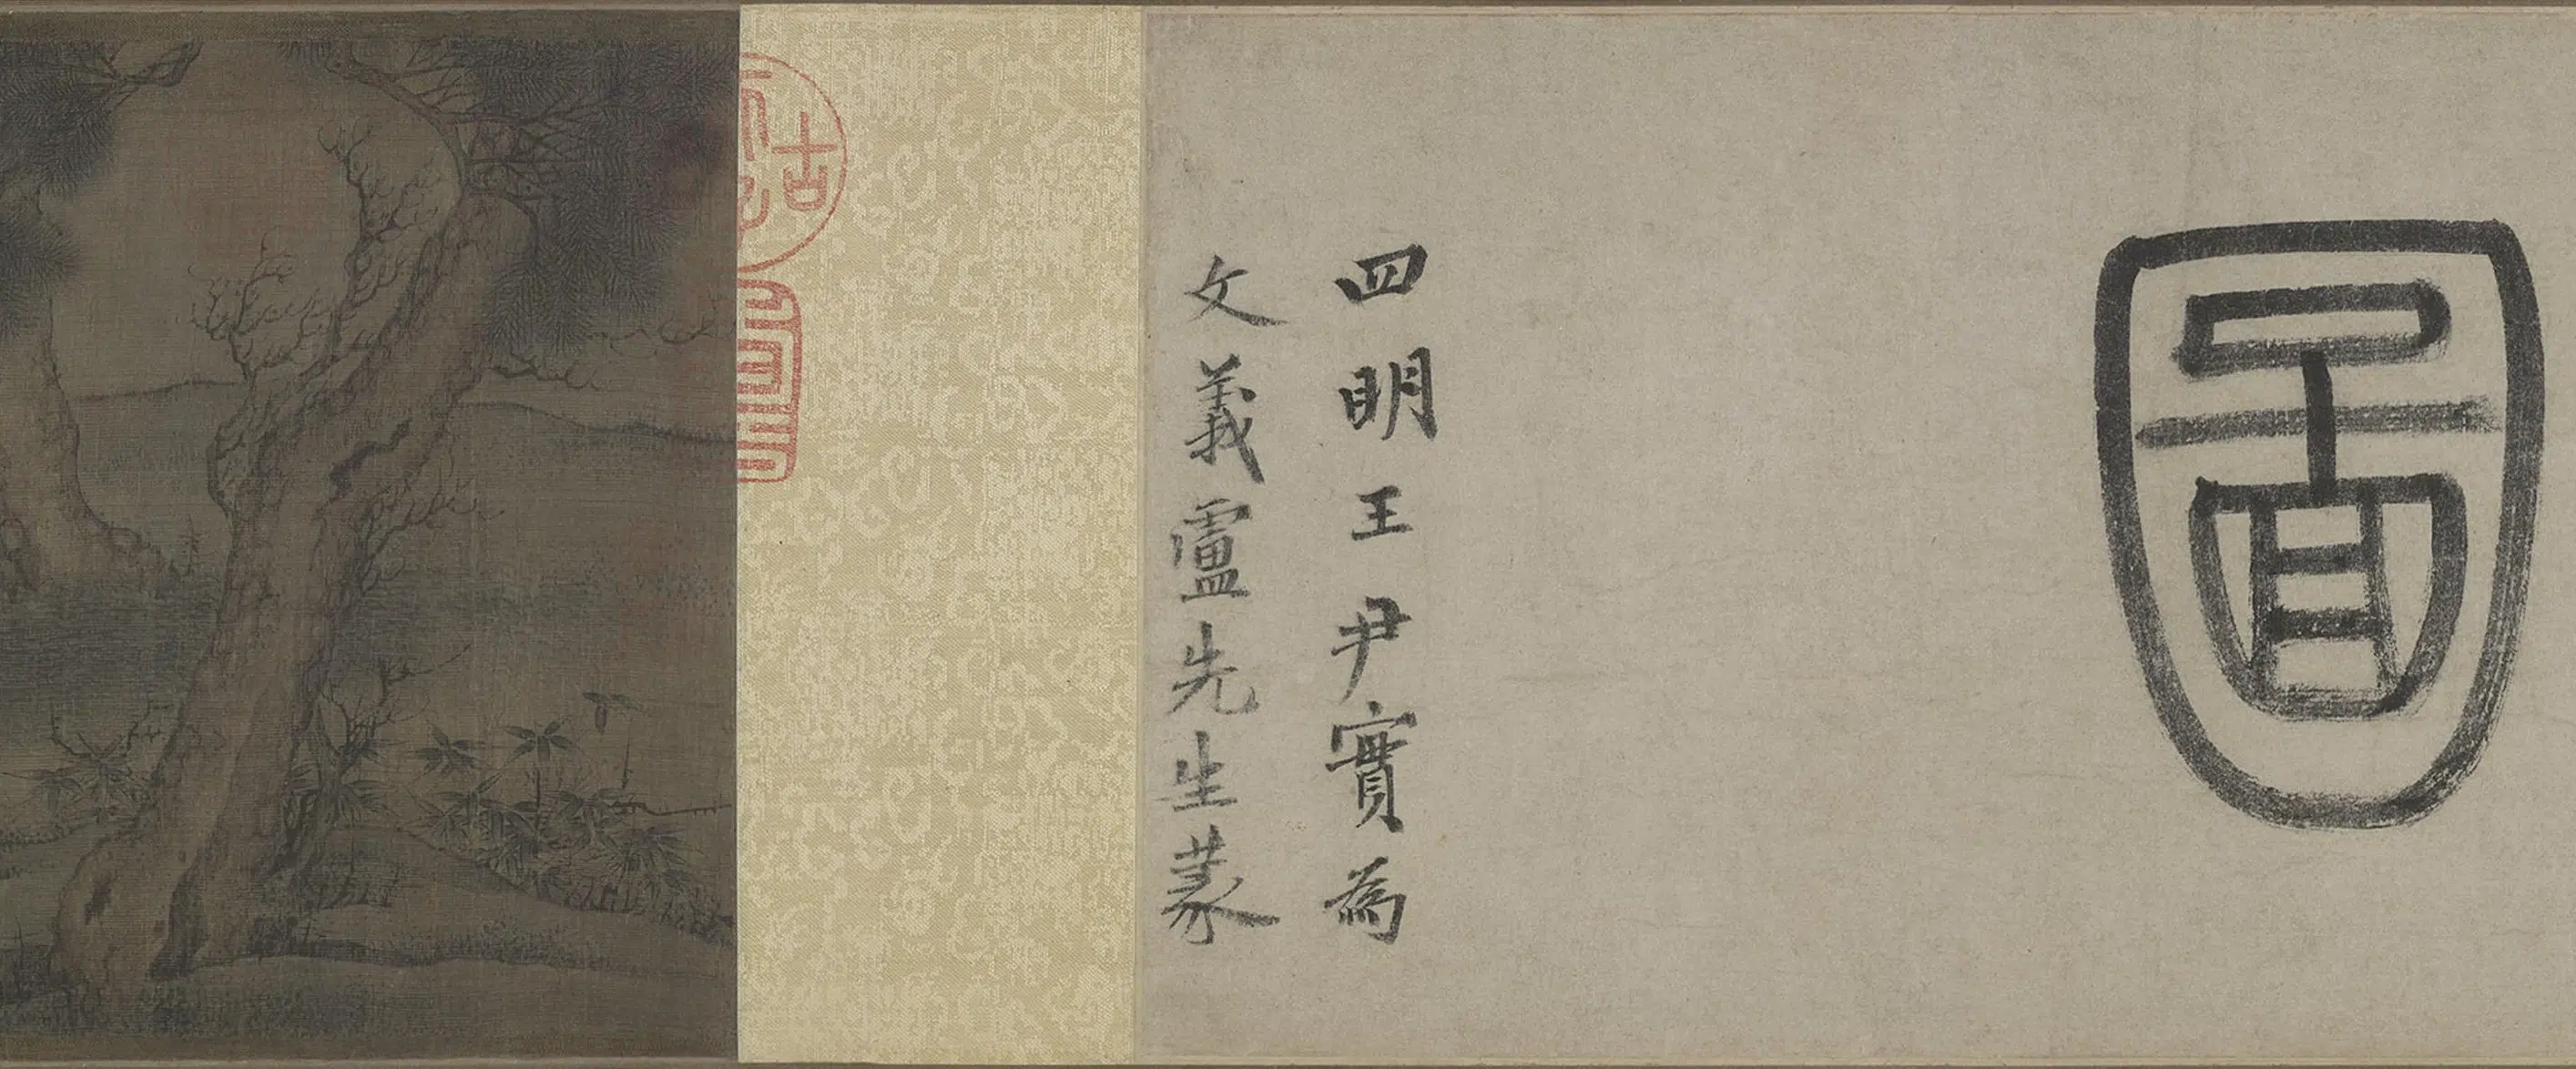 圖
四明王尹實為
文義盧先生篆